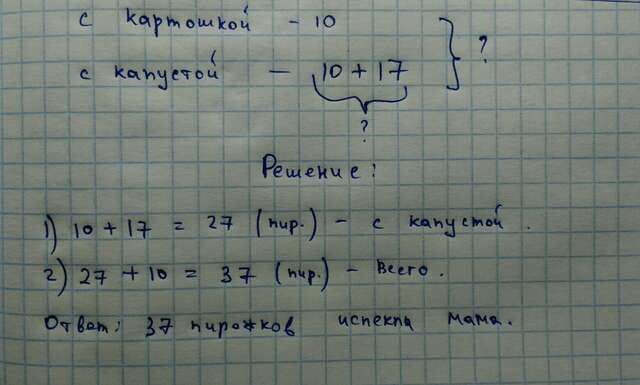 с картошкой - 10
?
с капустой - 10 + 17
?
Решение:
1) 10 + 17 = 27 (пир.) - с капустой.
2) 27 + 10 = 37 (пир.) - Всего.
Ответ: 37 пирожков испекла мама.